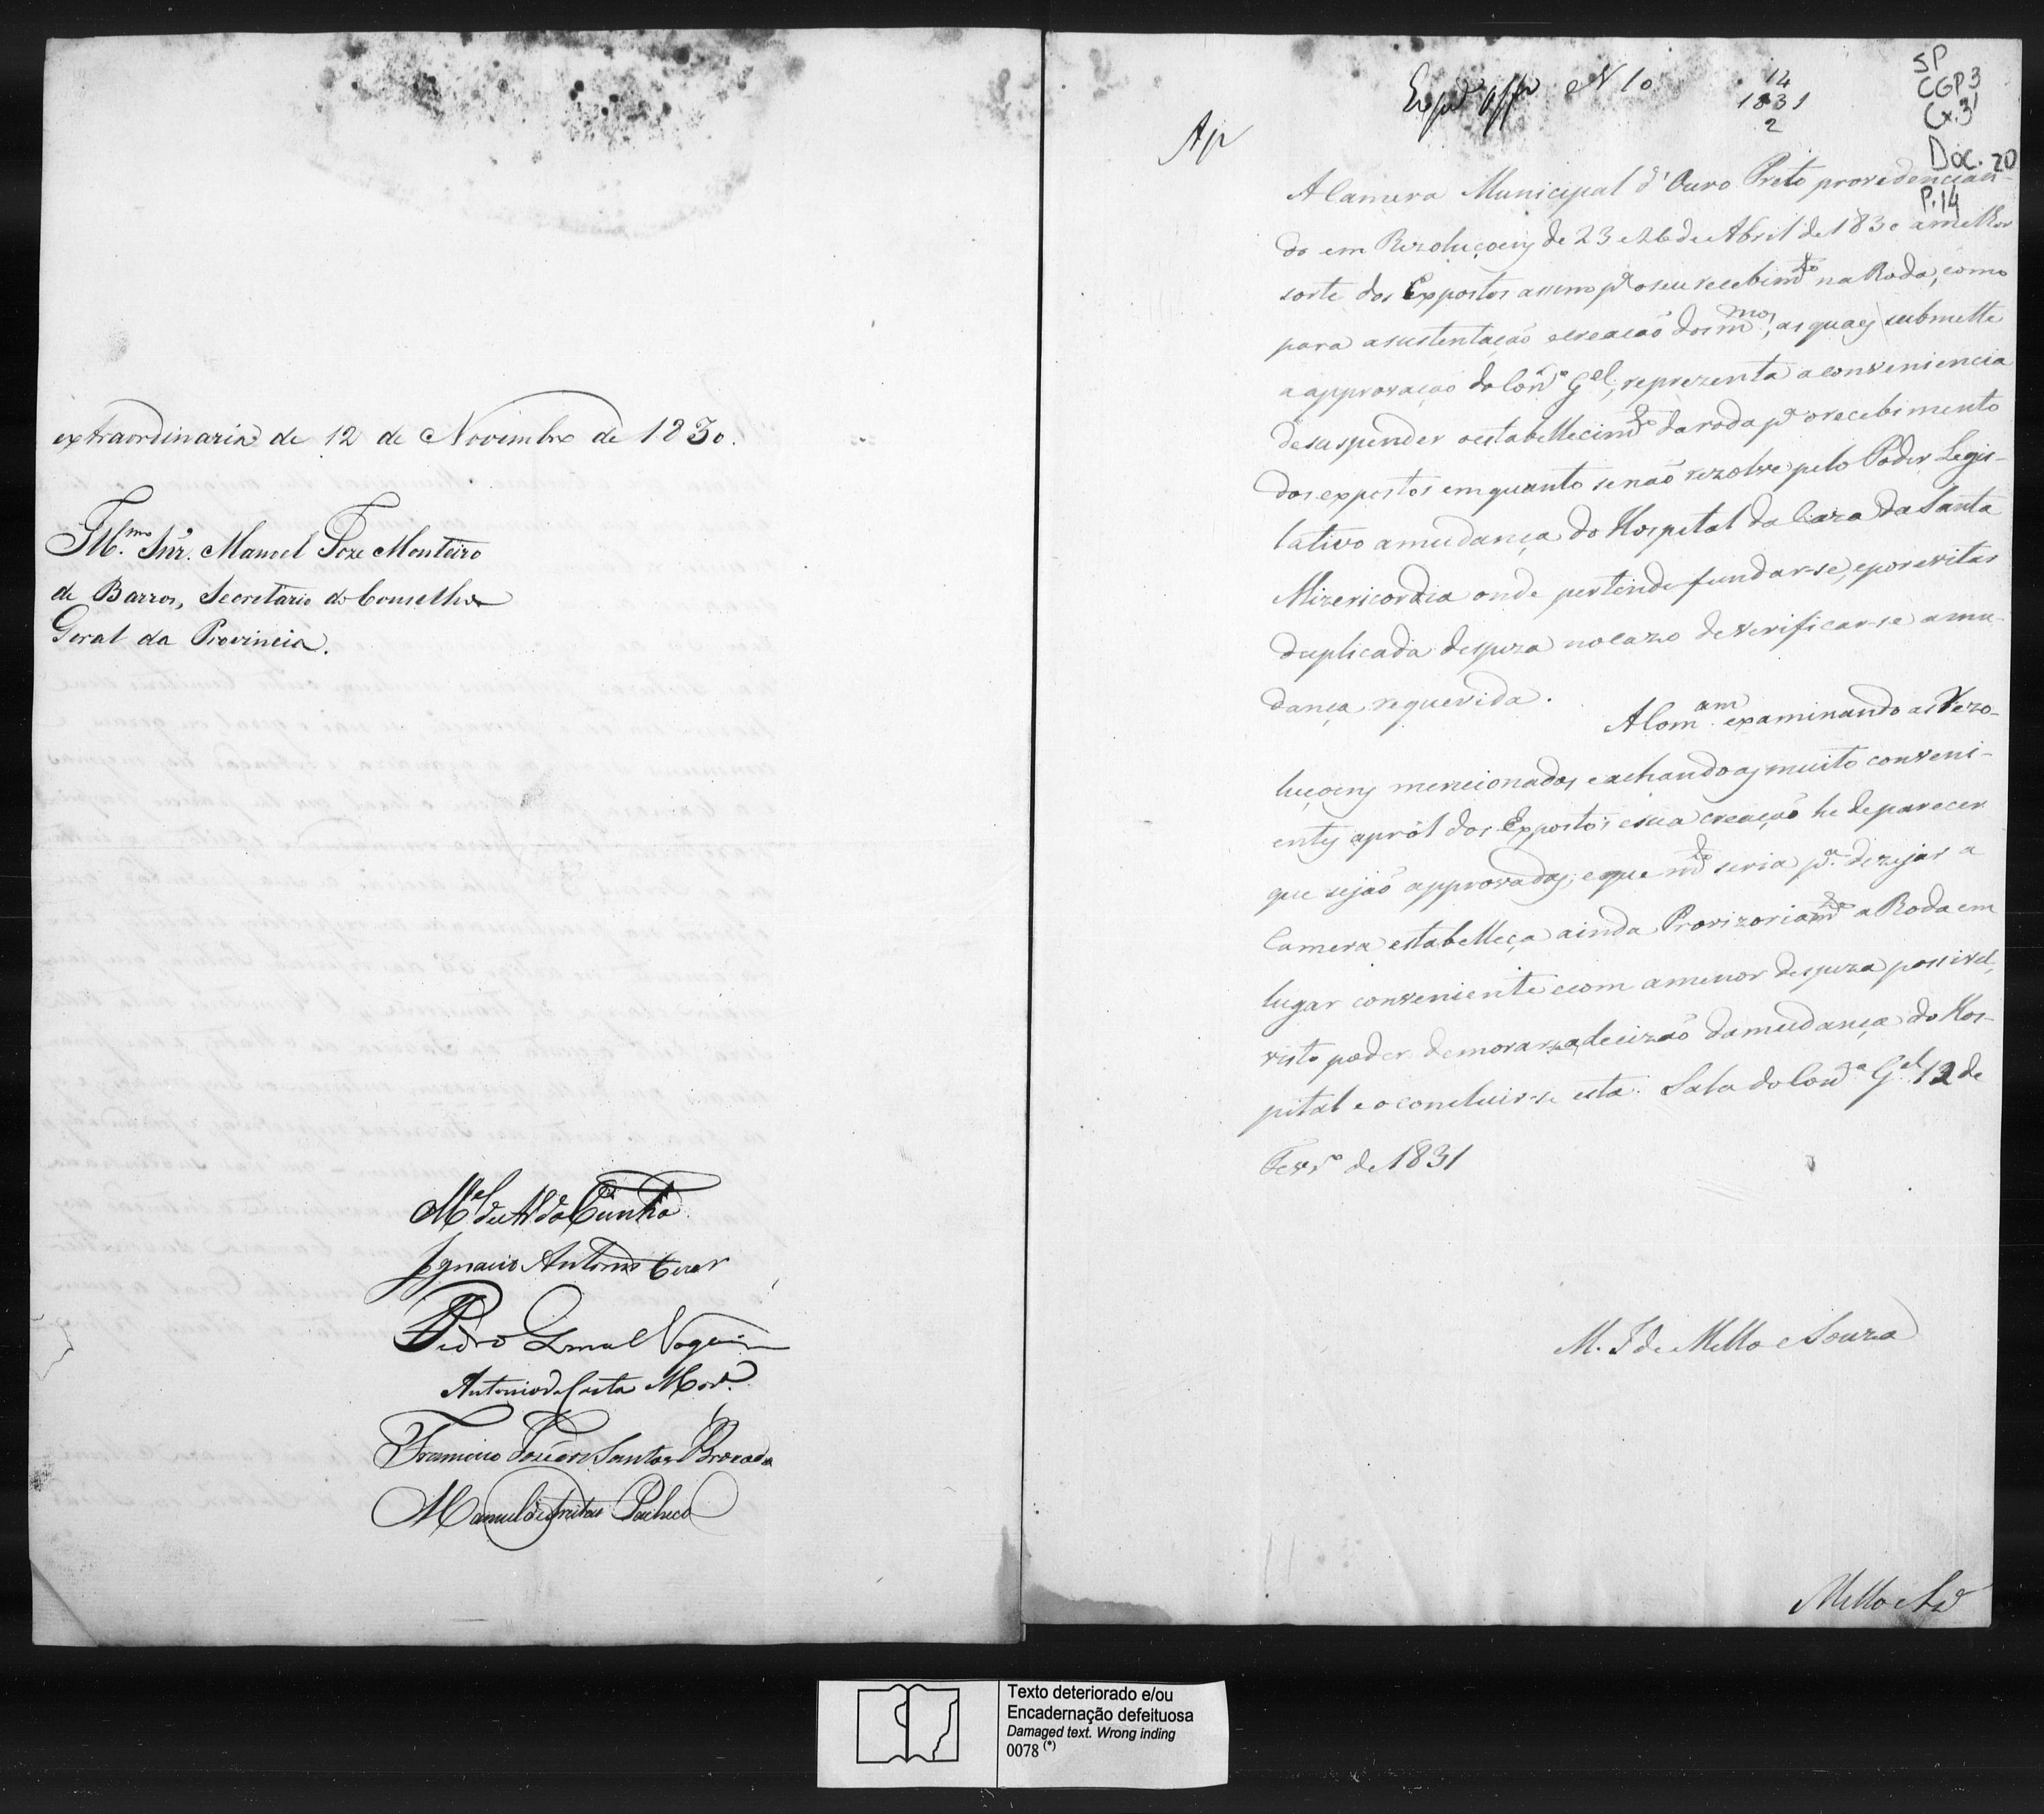 extraordinaria de 12 de Novembro de 1830.
Ill.mo Snr. Manoel Joze Monteiro
de Barros, Secretario do Conselho
Geral da Provincia.
M.el da Cunha
Ignacio Antonio Cezar
Pedro Nogueira
Antonio da Costa
Francisco José dos Santos
Manuel de Freitas Pacheco
N 10
14
1831
2
SP
CGP3
Cx.31
Doc. 20
P.14
Ap
A Camera Municipal d'Ouro Preto providencian-
do em Rezoluçoens de 23 e 26 de Abril de 1830 a melhor
sorte dos Expostos assim p.a o seu recebim.to na Roda, como
para a sustentação e creação dos m.mos, as quaes submette
a approvação do Con.o G.el, reprezenta a conveniencia
de suspender o estabellecim.to da roda p.a o recebimento
dos expostos em quanto se não rezolve pelo Poder Legis-
lativo a mudança do Hospital da Caza da Santa
Mizericordia onde pertende fundar-se, e por evitar
duplicada despeza no cazo de verificar-se a mu-
dança requerida.
A Com.am examinando as Rezo-
luçoens mencionadas, e achando as muito conveni-
entes a pról dos Expostos e sua creação he de parecer
que sejão approvadas, e que m.to seria p.a dezejar a
Camera estabelleça ainda Provizoriam.te a Roda em
lugar conveniente e com a menor despeza possivel,
visto poder demorar-se a decizão da mudança do Hos-
pital e o concluir-se esta. Sala do Con.o G.el 12 de
Fevr.o de 1831
M. J de Mello e Souza
Mello e
Texto deteriorado e/ou
Encadernação defeituosa
Damaged text. Wrong inding
0078 (*)